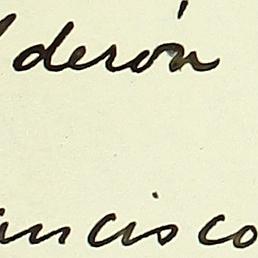 lderón
ancisco